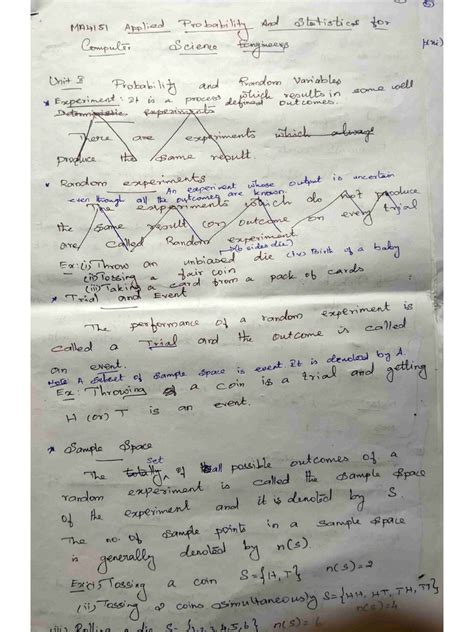 MA4151 Applied Probability and Statistics for
Computer Science Engineers
p(xi)
Unit I Probability and Random Variables
* Experiment: It is a process which results in some well
defined outcomes.
Deterministic experiments
There are experiments which always
produce the same result.
* Random experiments
An experiment whose output is uncertain
even though all the outcomes are known.
The experiments which do not produce
the same result (or) outcome on every trial
are called Random experiment.
(6 sides die)
Ex: (i) Throw an unbiased die (iv) Birth of a baby
(ii) Tossing a fair coin
(iii) Taking a card from a pack of cards
* Trial and Event
The performance of a random experiment is
called a Trial and the outcome is called
an event.
Note A subset of sample space is event It is denoted by A.
Ex: Throwing a coin is a trial and getting
H (or) T is an event.
* Sample Space
The totally set of all possible outcomes of a
random experiment is called the sample space
of the experiment and it is denoted by S.
The no. of sample points in a sample space
is generally denoted by n(s).
Ex: (i) Tossing a coin S={H,T} n(s)=2
(ii) Tossing 2 coins simultaneously S={HH, HT, TH, TT}
n(s)=4
(iii) Rolling a die S={1,2,3,4,5,6} n(s)=6